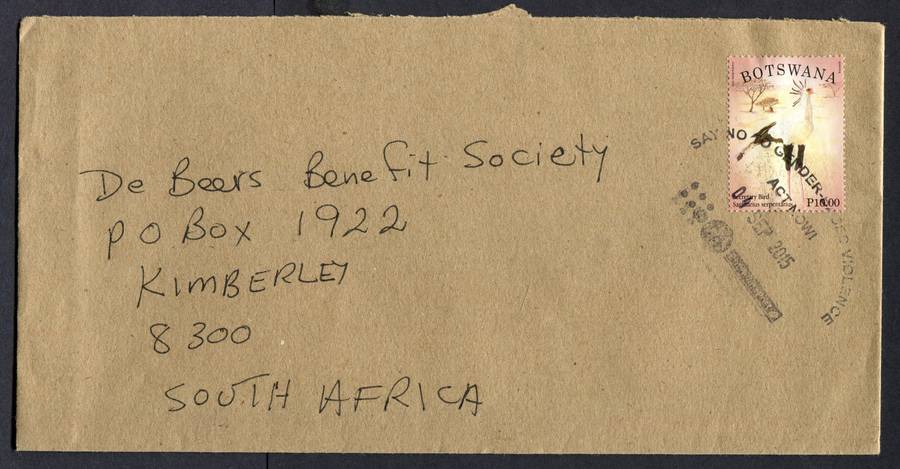 De Beers Benefit Society
P O Box 1922
KIMBERLEY
8300
SOUTH AFRICA
BOTSWANA
Secretary Bird
Sagittarius serpentarius
P10.00
SAY NO TO GENDER-BASED VIOLENCE
ACT NOW!
SEP 2015